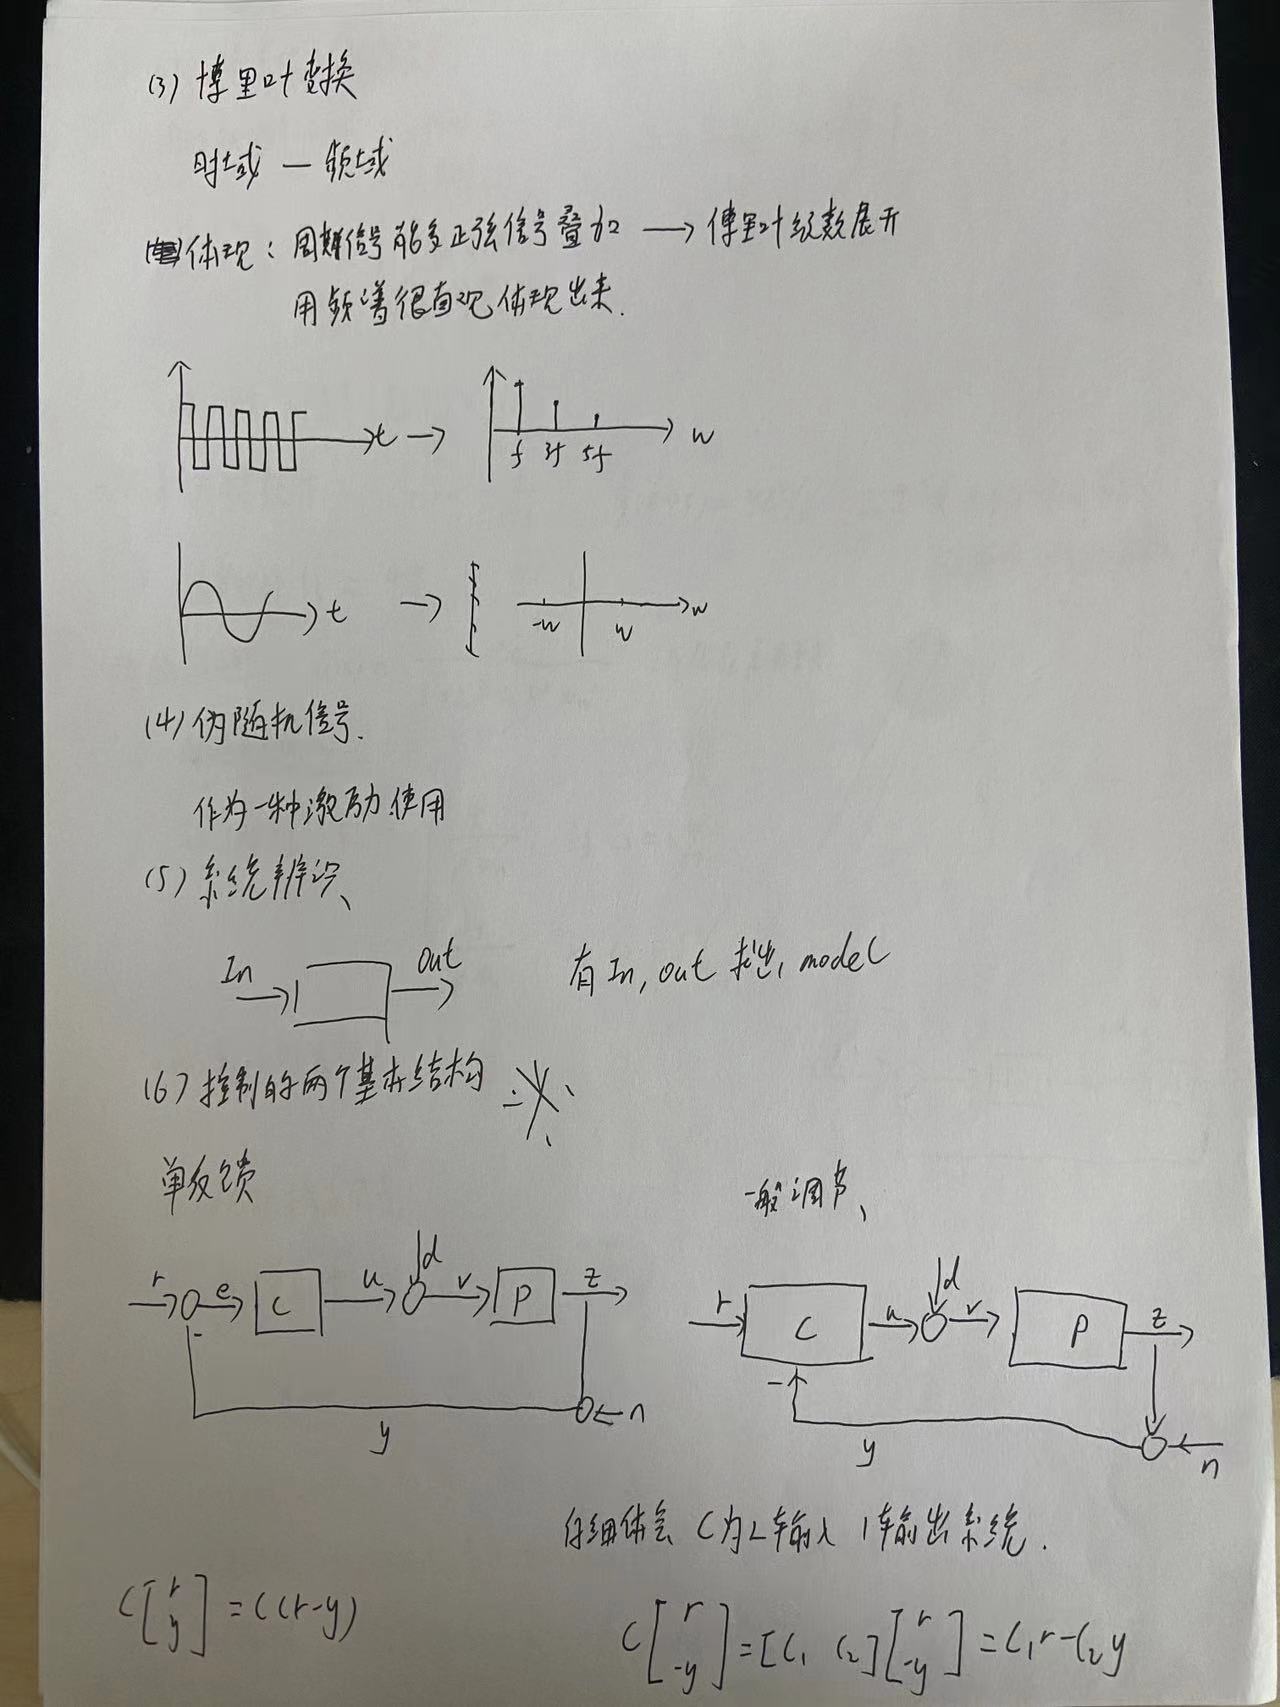 (3) 傅里叶变换
时域 — 频域
体现：周期信号能多正弦信号叠加 → 傅里叶级数展开
用频谱很直观体现出来.
t → f 3f 5f w
t → -w w w
(4) 伪随机信号.
作为一种激励使用
(5) 系统辨识、
In out 有 In, out 求出 model
(6) 控制的两个基本结构
单反馈 一般调节、
r e C u d v P z
- y n
r C u d v P z
- y n
仔细体会 C为2输入 1输出系统.
C[r y] = C(r-y)
C[r -y] = [C₁ C₂][r -y] = C₁r-C₂y